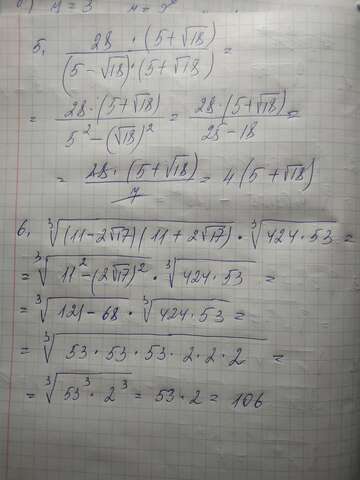 5. 28 · (5+√18) / (5-√18) · (5+√18) =
= 28 · (5+√18) / 5² - (√18)² = 28 · (5+√18) / 25 - 18 =
= 28 · (5+√18) / 7 = 4(5+√18)
6. ∛(11-2√17)(11+2√17) · ∛424·53 =
= ∛11² - (2√17)² · ∛424·53 =
= ∛121 - 68 · ∛424·53 =
= ∛53·53·53·2·2·2 =
= ∛53³·2³ = 53·2 = 106